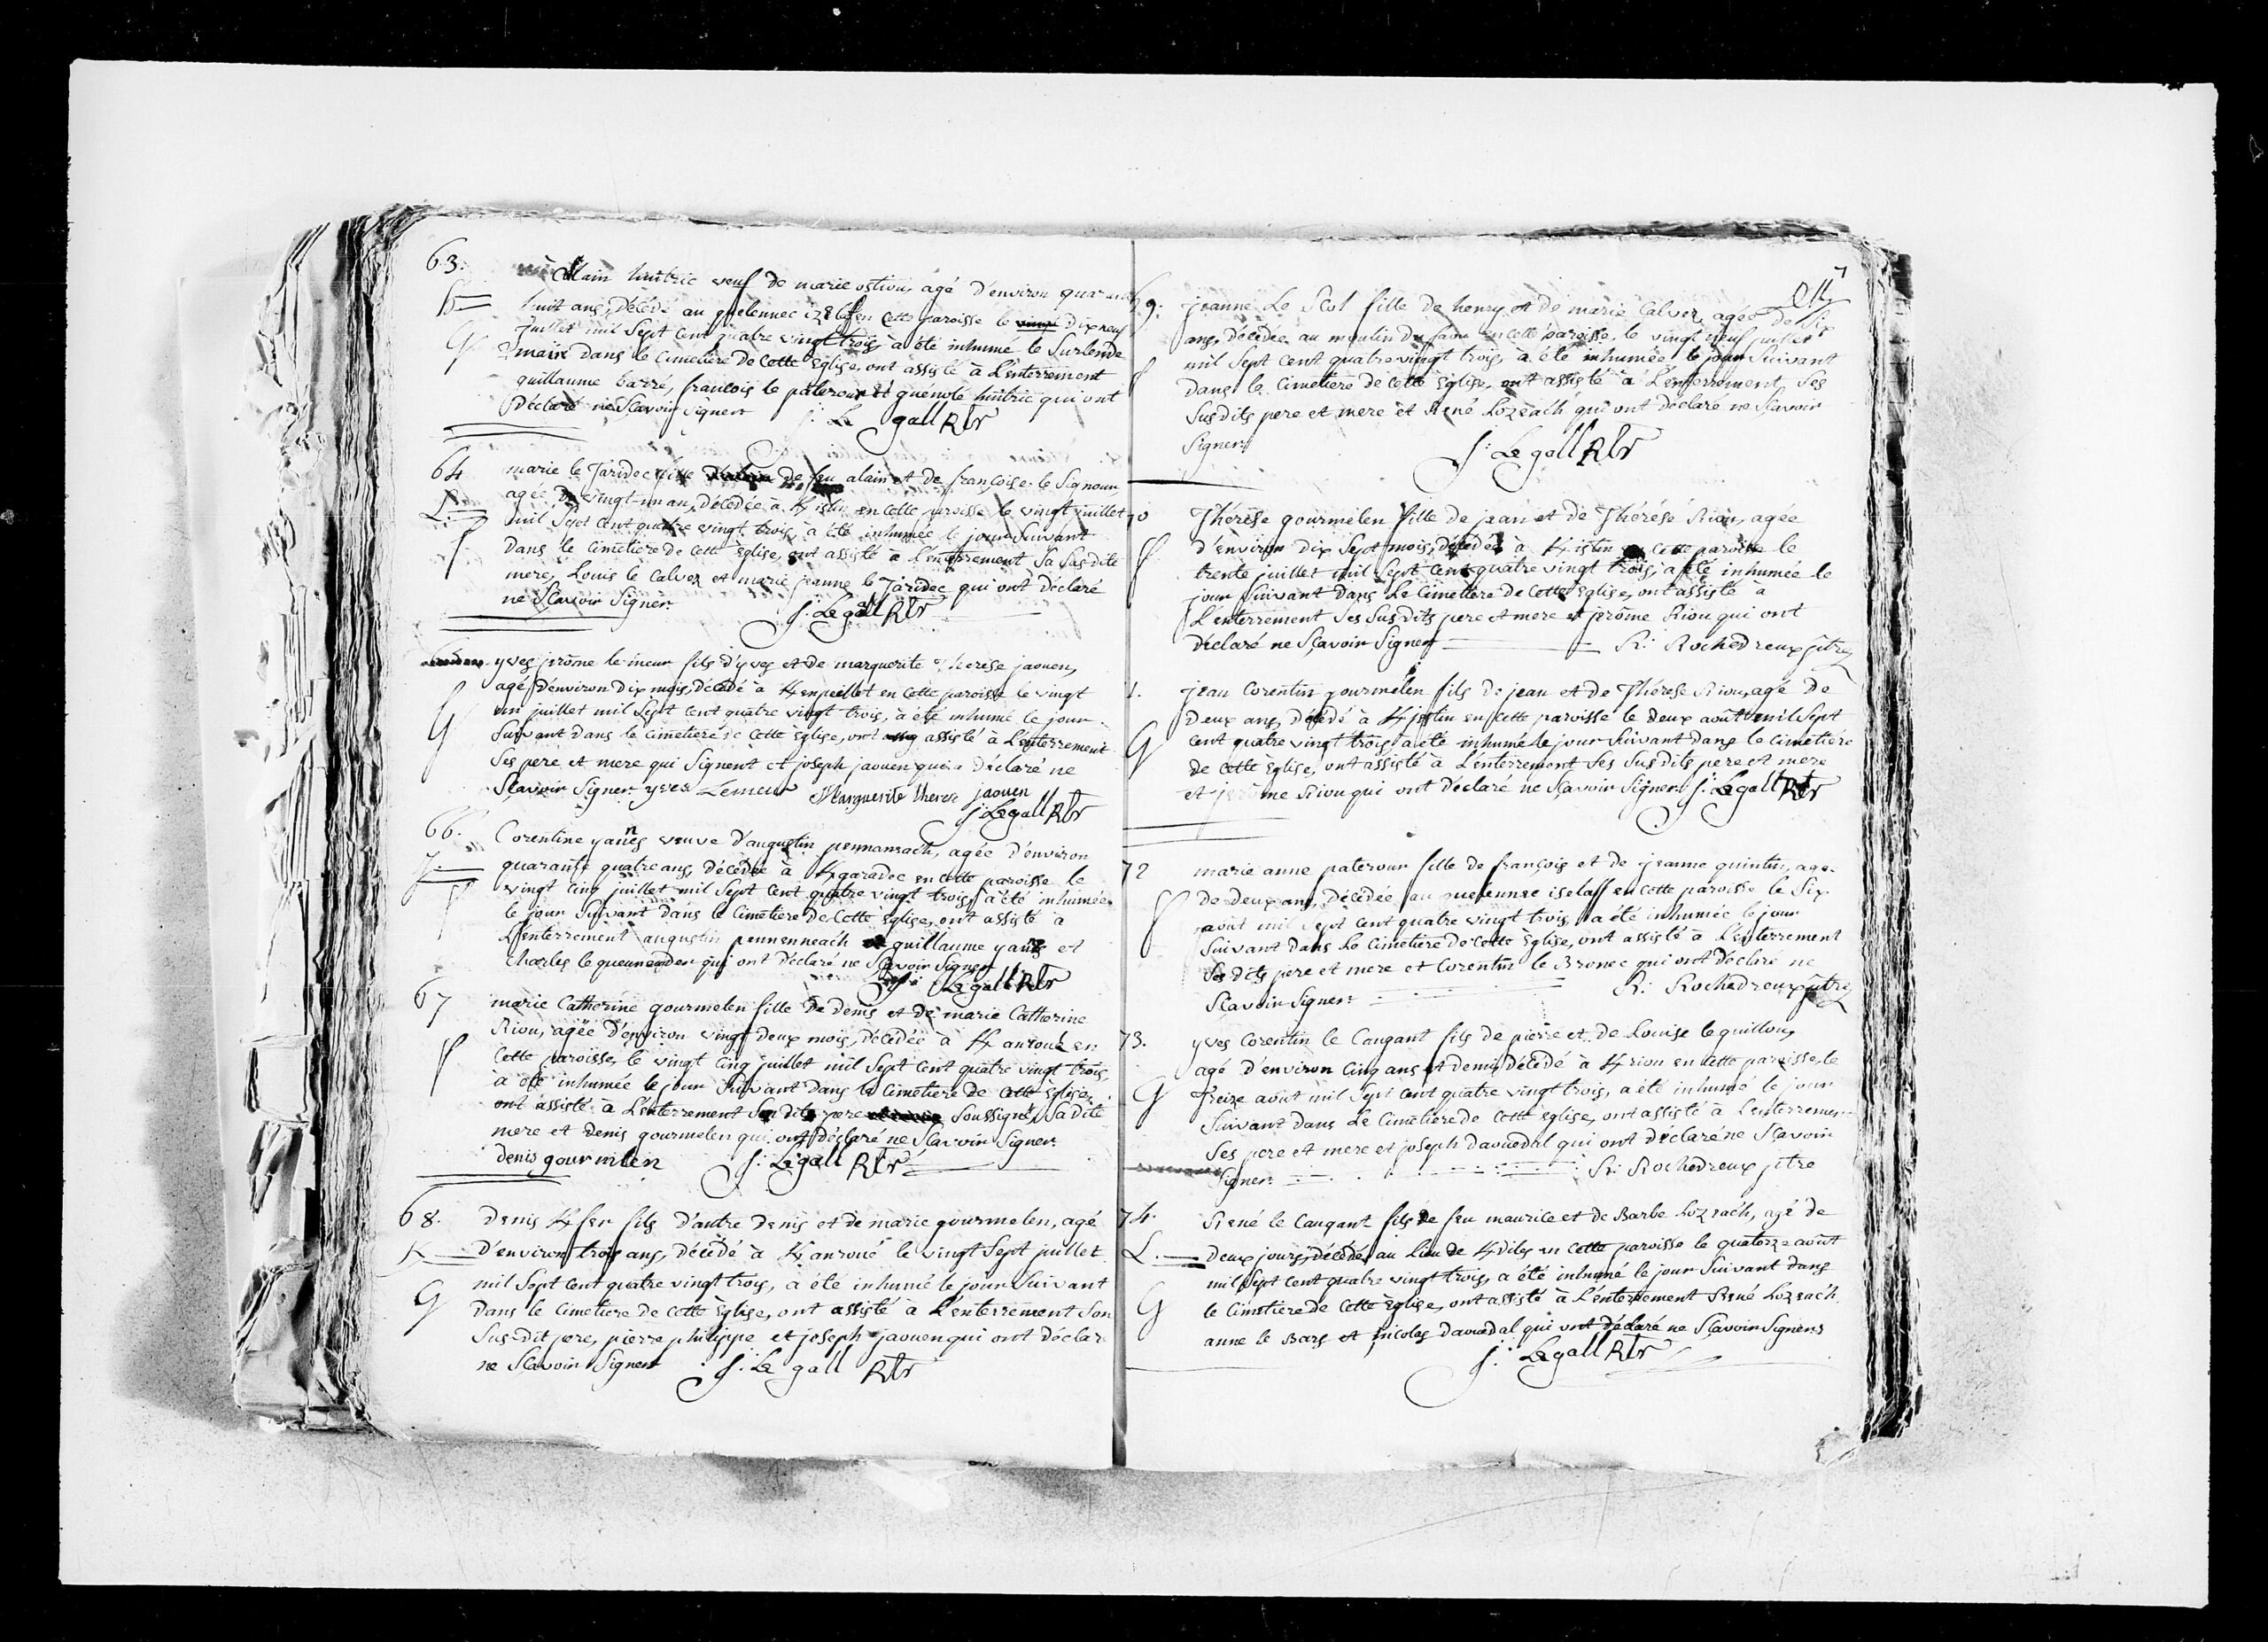 63.
Alain hintric veuf de marie ostiou, agé d'environ quarante
H huit ans, décédé au guelennec izelaff en cette paroisse le vingt dix neuf
juillet mil Sept cent quatre vingt trois, a été inhumé le Surlende
G main dans le Cimetiere de Cette Eglise, ont assisté à L'enterrement
guillaume barré, francois le paterour et guénolé hintric qui ont
Déclaré ne Sçavoir Signer J: Le gall Rtr
64 marie le Jaridec fille de feu alain et de françoise le Signour,
agée de vingt-un an, décédée à Kistin en cette paroisse le vingt juillet
L. mil Sept cent quatre vingt trois, a été inhumée le jour Suivant
f Dans le Cimetiere de Cette Eglise, ont assisté à L'enterrement Sa Sus-dite
mere, Louis le Calvez et marie jeanne le Jaridec qui ont déclaré
ne Sçavoir Signer J: Le gall Rtr
65 yves jérôme le meur fils d'yves et de marguerite Therese jaouen,
agé d'environ Dix mois, décédé à en cette paroisse le vingt
un juillet mil Sept cent quatre vingt trois, a été inhumé le jour
G Suivant dans le Cimetiere de Cette Eglise, ont assisté à L'enterrement
Ses pere et mere qui Signent et joseph jaouen qui a Déclaré ne
Sçavoir Signer yves Lemeur Marguerite therese jaouen
J: Legall Rtr
66. Corentine yanes veuve d'augustin pennaneach, agée d'environ
Y quarante quatre ans, décédée à Kgaradec en cette paroisse le
f vingt cinq juillet mil Sept Cent quatre vingt trois, a été inhumée
le jour Suivant dans le Cimetiere de Cette Eglise, ont assisté à
L'enterrement augustin pennenneach guillaume yanes et
Charles le queuneuder qui ont déclaré ne Sçavoir Signer
J: Legall Rtr
67 marie Catherine gourmelen fille de denis et de marie Catherine
Riou, agée d'environ vingt deux mois, décédée à Kanroué en
f Cette paroisse, le vingt cinq juillet mil Sept Cent quatre vingt trois,
a été inhumée le jour Suivant dans le Cimetiere de Cette Eglise,
ont assisté à L'enterrement Son dit pere Soussigné, Sa dite
mere et denis gourmelen qui ont déclaré ne Sçavoir Signer
denis gourmelen J: Legall Rtr
68. Denis Kfer fils d'autre denis et de marie gourmelen, agé
K d'environ trois ans, décédé à Kanroué le vingt Sept juillet
mil Sept cent quatre vingt trois, a été inhumé le jour Suivant
G Dans le Cimetiere de Cette Eglise, ont assisté à L'enterrement Son
Sus-dit pere, pierre philippe et joseph jaouen qui ont déclaré
ne Sçavoir Signer J: Le gall Rtr
7
69. jeanne Le Scol fille de henry et de marie Calvez, agée de Six
ans, décédée au moulin du faou en cette paroisse, le vingt neuf juillet
mil Sept cent quatre vingt trois, a été inhumée le jour Suivant
f Dans le Cimetiere de Cette Eglise, ont assisté à L'enterrement, Ses
Susdits pere et mere et René Lozeach qui ont déclaré ne Sçavoir
Signer J: Le gall Rtr
70 Thérèse gourmelen fille de jean et de Thérèse Riou, agée
d'environ Dix Sept mois, décédée à Kistin en Cette paroisse le
f trente juillet mil Sept cent quatre vingt trois, a été inhumée le
jour Suivant Dans Le Cimetiere de Cette Eglise, ont assisté à
L'enterrement Ses Susdits pere et mere et jérôme Riou qui ont
déclaré ne Sçavoir Signer R: Rochedreux ptre
1. jean Corentin gourmelen fils de jean et de Thérese Riou, agé de
Deux ans, décédé à Kjstin en Cette paroisse le deux août mil Sept
G cent quatre vingt trois a été inhumé le jour Suivant Dans le Cimetiére
de Cette Eglise, ont assisté à L'enterrement Ses Susdits pere et mere
et jerôme Riou qui ont déclaré ne Sçavoir Signer J: Legall Rtr
72 marie anne paterour fille de françois et de jeanne quintin, agée
De deux ans, décédée au guelennec iselaff en cette paroisse le Six
f aout mil Sept cent quatre vingt trois, a été inhumée le jour
Suivant dans Le Cimetiere de Cette Eglise, ont assisté à L'enterrement
Ses dits pere et mere et Corentin le Bronec qui ont déclaré ne
Sçavoir Signer R: Rochedreux ptre
73. yves Corentin le Caugant fils de pierre et de Louise le guillou,
agé d'environ Cinq ans et demi, décédé à Krion en Cette paroisse, le
G treize août mil Sept cent quatre vingt trois, a été inhumé le jour
Suivant Dans Le Cimetiere de Cette Eglise, ont assisté à L'enterrement
Ses pere et mere et joseph daouedal qui ont déclaré ne Sçavoir
Signer R: Rochedreux ptre
74. René le Caugant fils de feu maurice et de Barbe Lozeach, agé de
L. Deux jours, décédé au Lieu de Kdiles en Cette paroisse le quatorze août
mil Sept Cent quatre vingt trois, a été inhumé le jour Suivant dans
G le Cimetiere de Cette Eglise, ont assisté à L'enterrement René Lozeach
anne le Bars et nicolas daouedal qui ont déclaré ne Sçavoir Signer
J: Legall Rtr